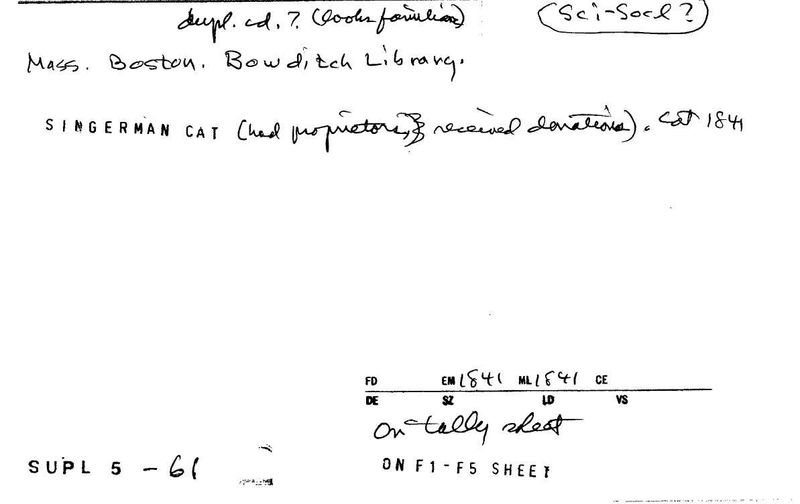 dupl. cd. ? (looks familiar) (Sci-Socl ?)
Mass. Boston. Bowditch Library.
SINGERMAN CAT (had proprietors, & received donations). Cat 1841
FD EM 1841 ML 1841 CE
DE SZ LD VS
On tally sheet
SUPL 5 - 61 ON F1-F5 SHEET